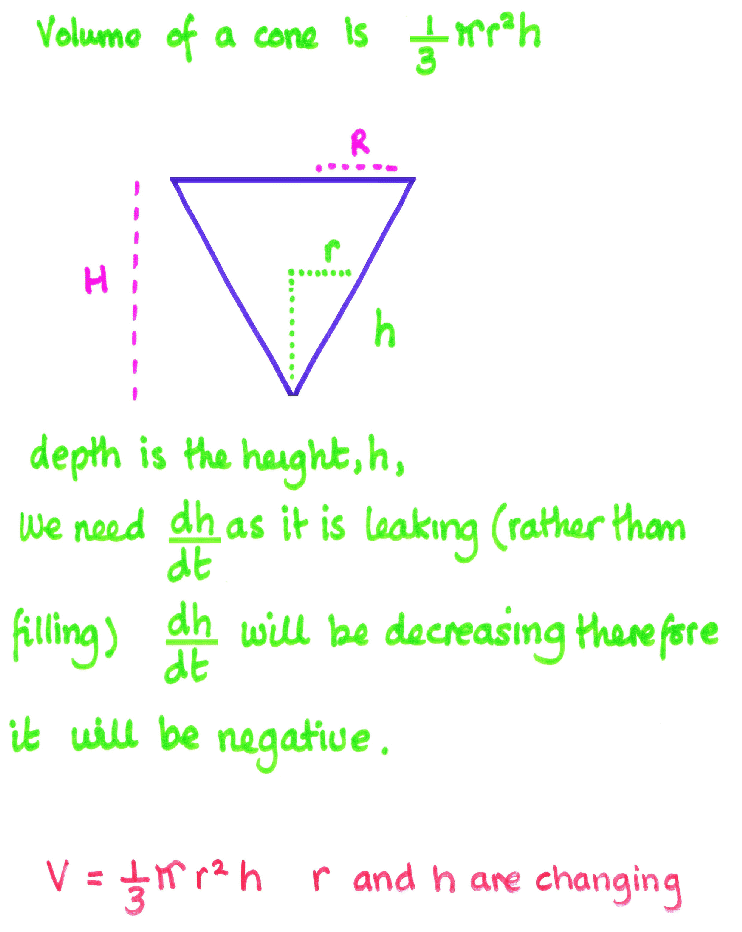 Volume of a cone is 1/3 πr²h
R
r
H
h
depth is the height, h,
We need dh/dt as it is leaking (rather than
filling) dh/dt will be decreasing therefore
it will be negative.
V = 1/3 π r² h r and h are changing